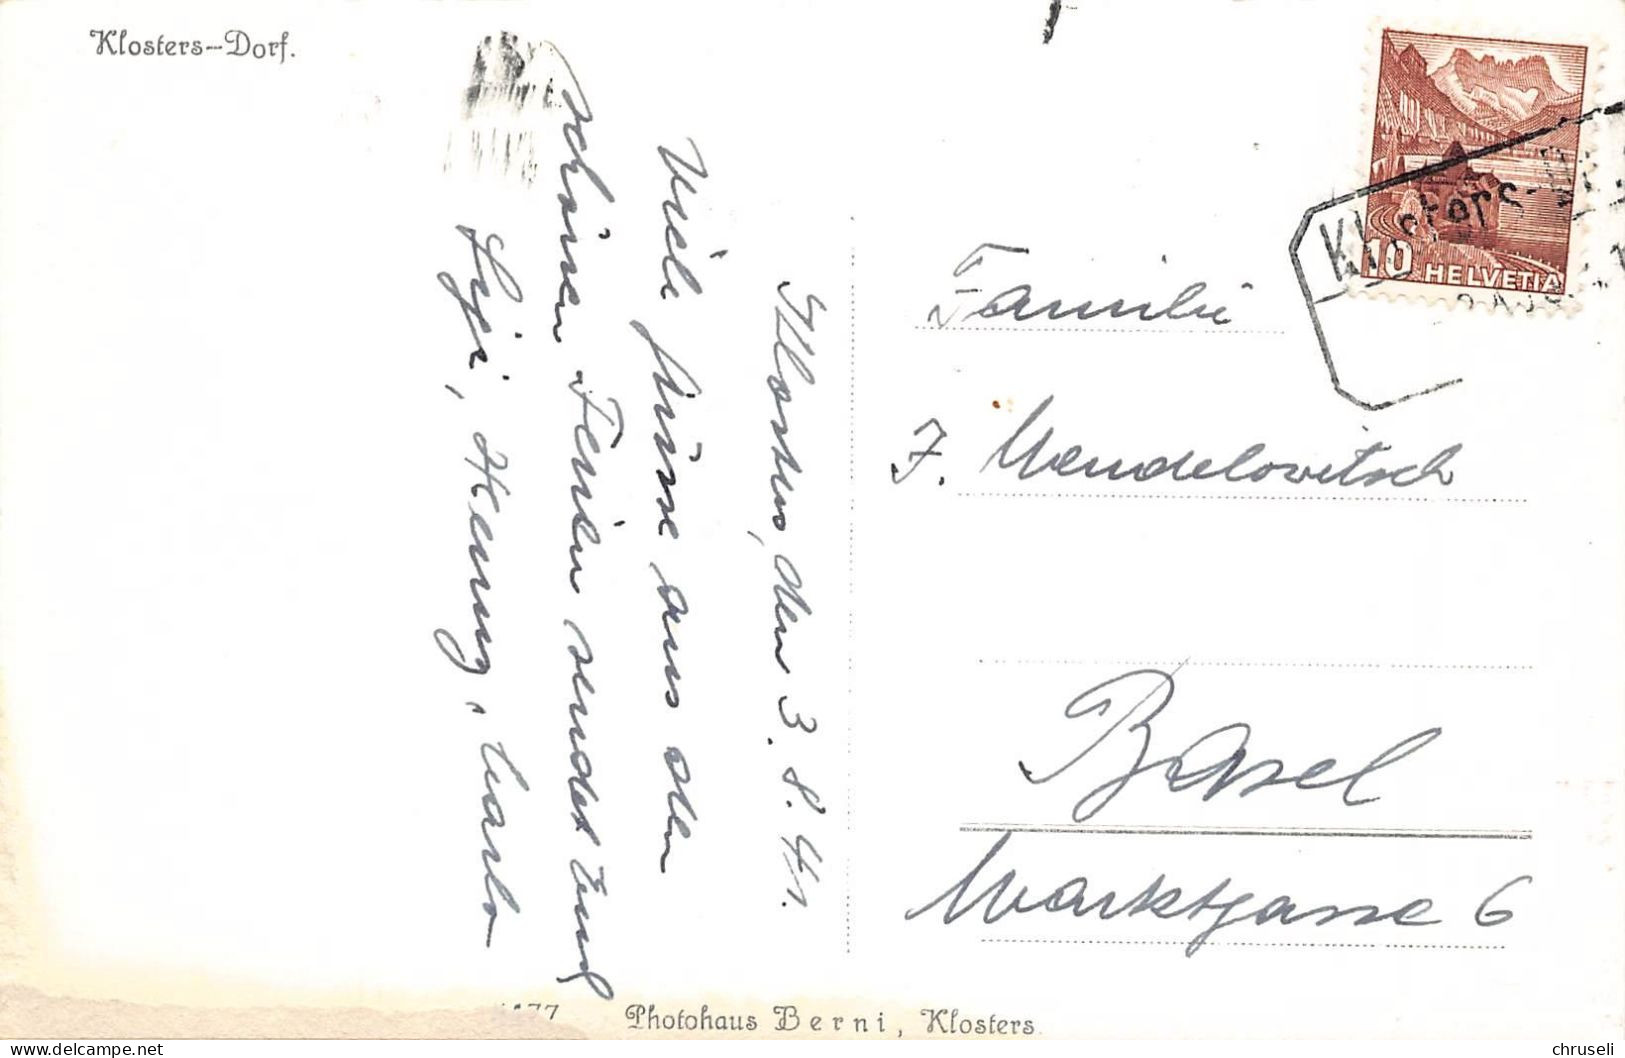 Klosters-Dorf.
Klosters, den 3. 8. 41.
Viele Grüsse aus den
schönen Ferien sendet Euch
Henny, Carlo
Familie
J. Mendelovitsch
Basel
Marktgasse 6
10 HELVETIA
Klosters-
77
Photohaus Berni, Klosters.
chruseli